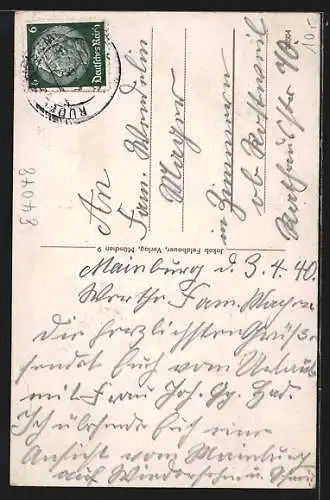 6
Deutsches Reich
10.-
84078
An
Fam. Wendelin
Mayer
in Zimmern
ob Rottweil
Jakob Feldbauer, Verlag, München 9
Mainburg d. 3.4.40.
Werthe Fam. Mayer
Die herzlichsten Grüße
sendet Euch vom Urlaub
mit Frau Joh.
Ich übersende Euch eine
Ansicht von Mainburg
auf Wiedersehn u.